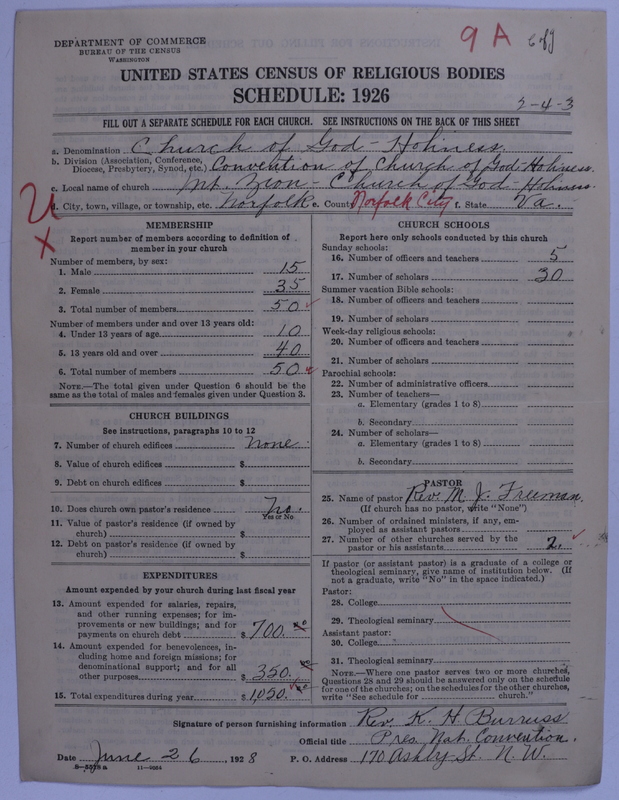 DEPARTMENT OF COMMERCE
BUREAU OF THE CENSUS
WASHINGTON
9 A
UNITED STATES CENSUS OF RELIGIOUS BODIES
SCHEDULE: 1926
2-4-3
FILL OUT A SEPARATE SCHEDULE FOR EACH CHURCH. SEE INSTRUCTIONS ON THE BACK OF THIS SHEET
a. Denomination Church of God - Holiness.
b. Division (Association, Conference, Diocese, Presbytery, Synod, etc.) Convention of Church of God-Holiness.
c. Local name of church Mt. Zion - Church of God - Holiness.
d. City, town, village, or township, etc. Norfolk e. County Norfolk City f. State Va.
MEMBERSHIP
Report number of members according to definition of
member in your church
Number of members, by sex:
1. Male 15
2. Female 35
3. Total number of members 50
Number of members under and over 13 years old:
4. Under 13 years of age 10
5. 13 years old and over 40
6. Total number of members 50
NOTE.—The total given under Question 6 should be the
same as the total of males and females given under Question 3.
CHURCH BUILDINGS
See instructions, paragraphs 10 to 12
7. Number of church edifices none.
8. Value of church edifices $
9. Debt on church edifices $
10. Does church own pastor's residence no.
Yes or No
11. Value of pastor's residence (if owned by
church) $
12. Debt on pastor's residence (if owned by
church) $
EXPENDITURES
Amount expended by your church during last fiscal year
13. Amount expended for salaries, repairs,
and other running expenses; for im-
provements or new buildings; and for
payments on church debt $700.
14. Amount expended for benevolences, in-
cluding home and foreign missions; for
denominational support; and for all
other purposes $350.
15. Total expenditures during year $1,050.
CHURCH SCHOOLS
Report here only schools conducted by this church
Sunday schools:
16. Number of officers and teachers 5
17. Number of scholars 30
Summer vacation Bible schools:
18. Number of officers and teachers
19. Number of scholars
Week-day religious schools:
20. Number of officers and teachers
21. Number of scholars
Parochial schools:
22. Number of administrative officers
23. Number of teachers—
a. Elementary (grades 1 to 8)
b. Secondary
24. Number of scholars—
a. Elementary (grades 1 to 8)
b. Secondary
PASTOR
25. Name of pastor Rev. M. J. Freeman.
(If church has no pastor, write "None")
26. Number of ordained ministers, if any, em-
ployed as assistant pastors
27. Number of other churches served by the
pastor or his assistants 2.
If pastor (or assistant pastor) is a graduate of a college or
theological seminary, give name of institution below. (If
not a graduate, write "No" in the space indicated.)
Pastor:
28. College
29. Theological seminary
Assistant pastor:
30. College
31. Theological seminary
NOTE.—Where one pastor serves two or more churches,
Questions 28 and 29 should be answered only on the schedule
for one of the churches; on the schedules for the other churches,
write "See schedule for church."
Signature of person furnishing information Rev. K. H. Burruss
Official title Pres. Nat. Convention.
Date June 26, 1928 P. O. Address 170 Ashby St. N. W.
8-5578 a 11-9684